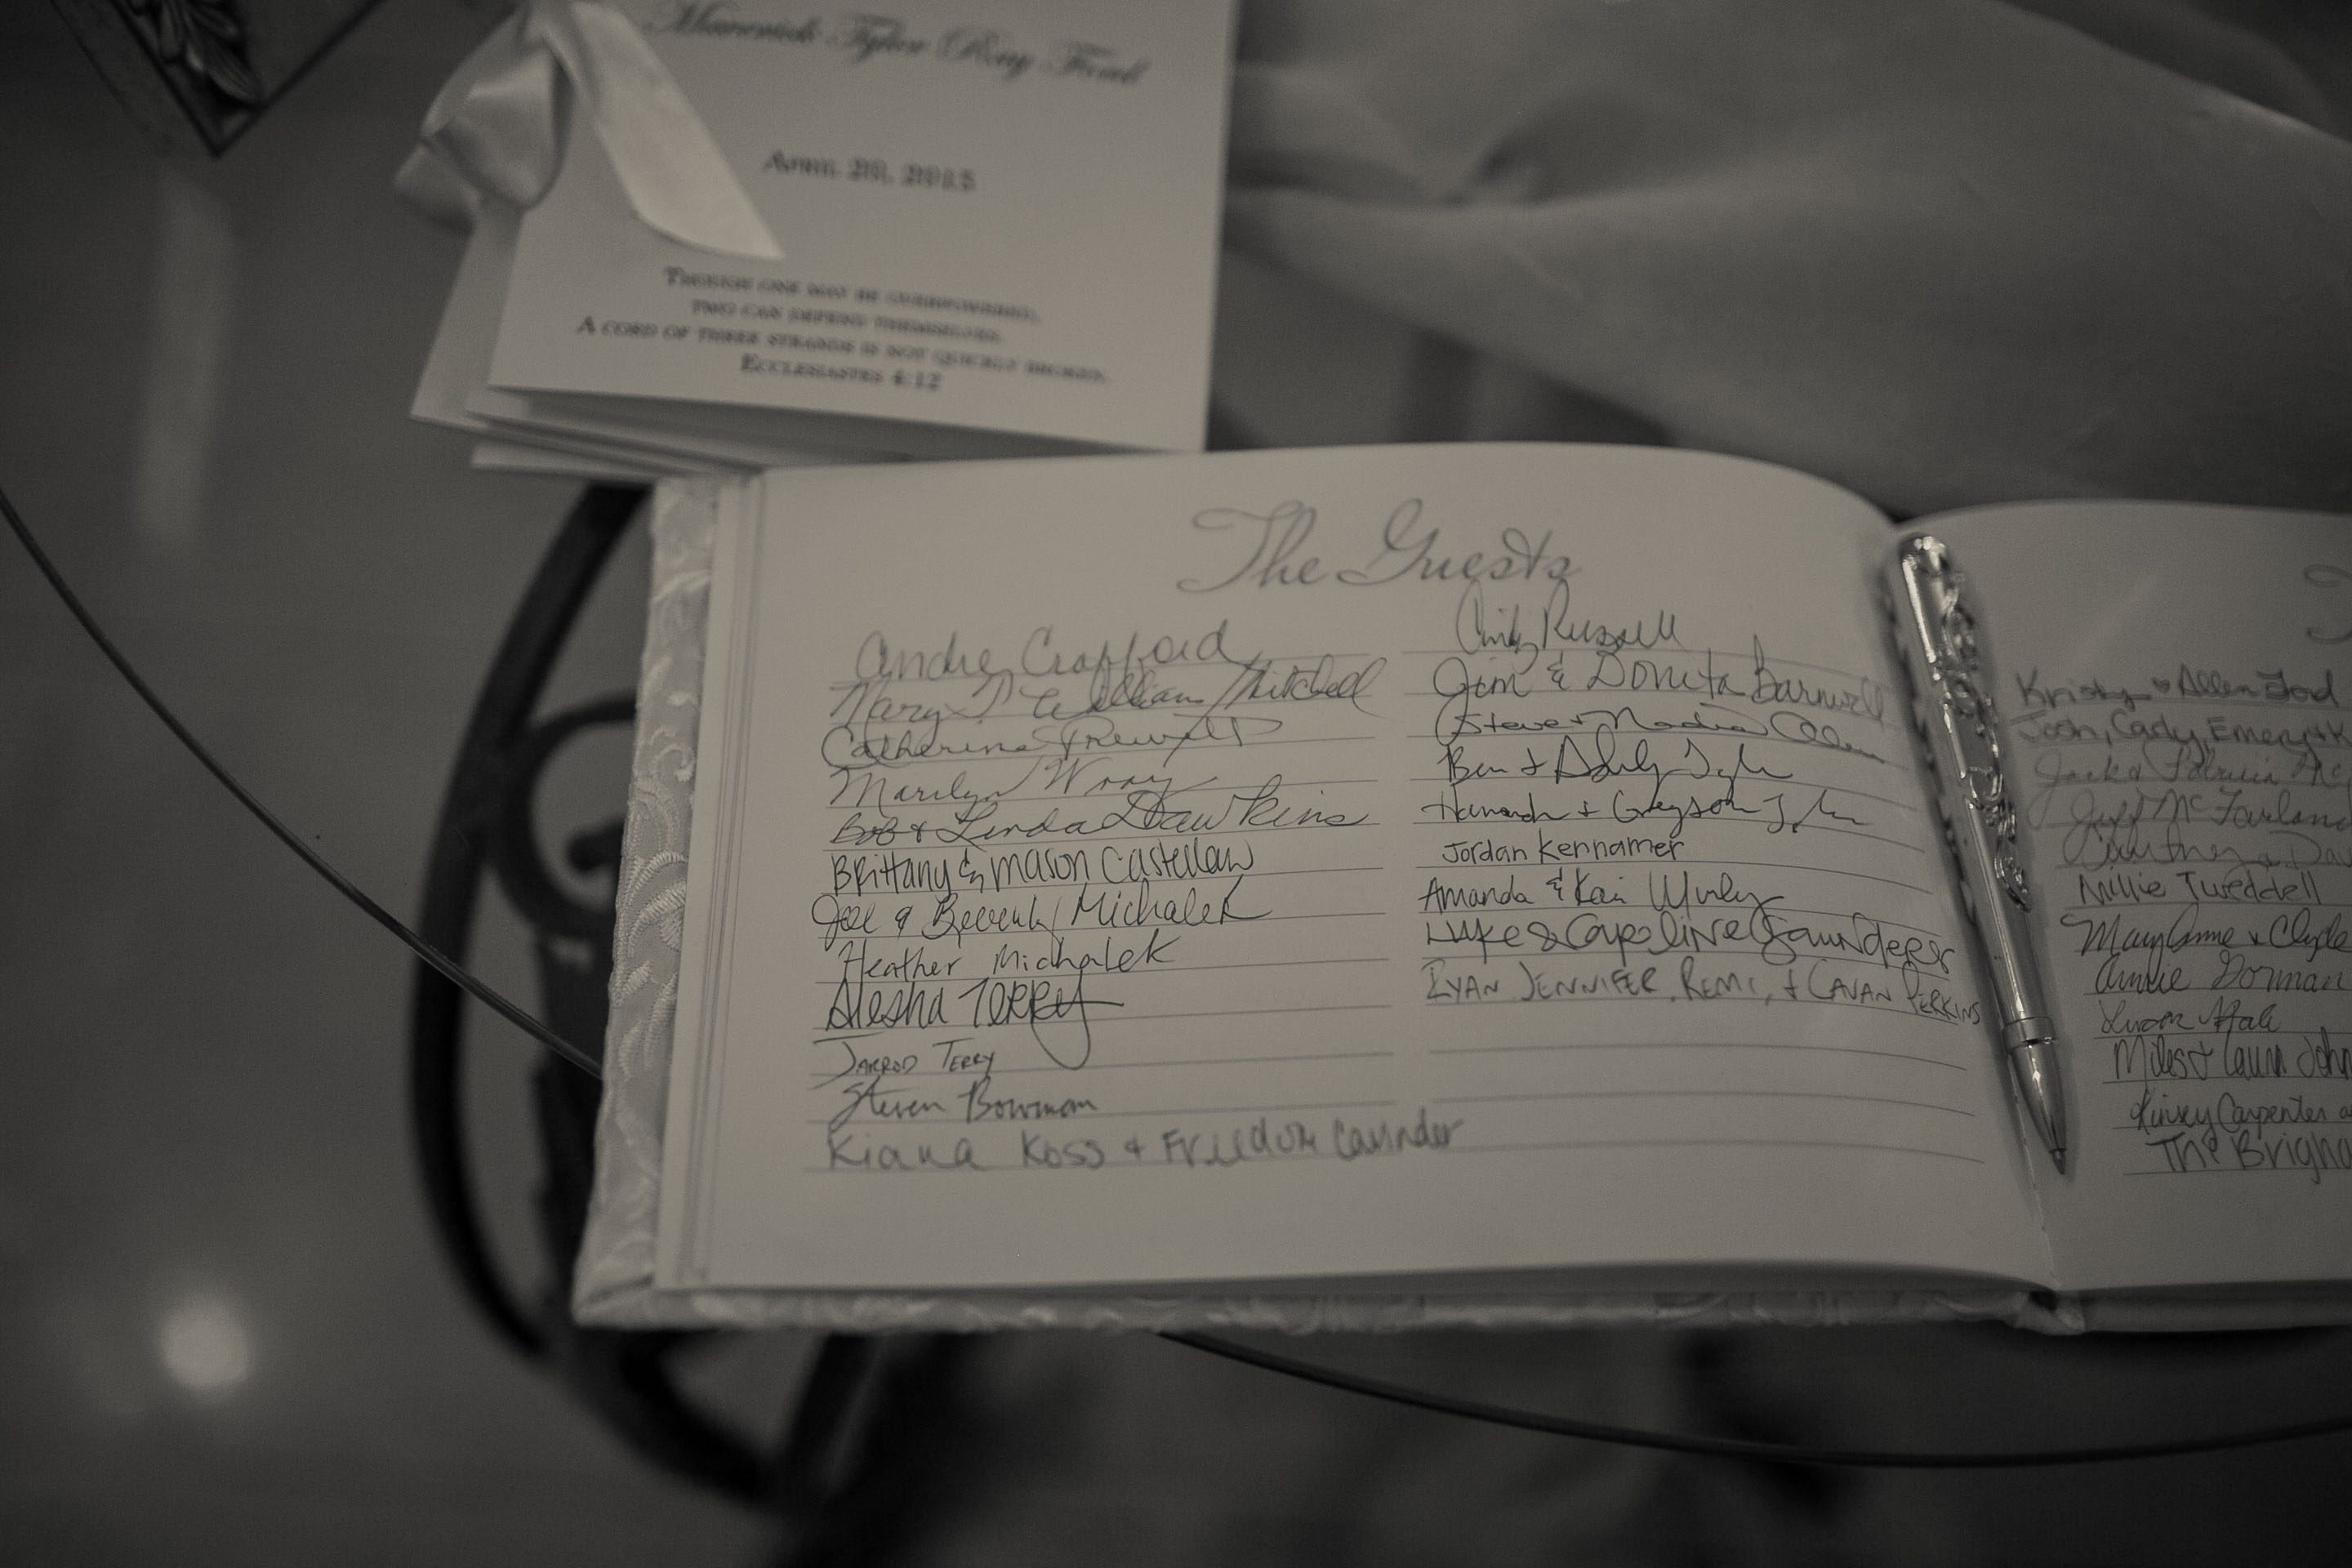 Maverick Tyler Ray Ford
April 20, 2015
Though one may be overpowered,
two can defend themselves.
A cord of three strands is not quickly broken.
Ecclesiastes 4:12
The Guests
Andrea Crafford
Mary & William Mitchell
Catherine Prewitt
Marilyn Wray
Bob & Linda Dawkins
Brittany & Mason Castellaw
Joe & Beverly Michalek
Heather Michalek
Alesha Terry
Jarrod Terry
Steven Bowman
Kiana Koss & Freedom Caunder
Cindy Russell
Jim & Donita Barnwell
Steve & Nadia Allen
Ben & Ashly Tyler
Hannah & Greyson Tyler
Jordan Kennamer
Amanda & Kai
Luke & Caroline Saunders
Ryan Jennifer, Remi, & Cavan Perkins
Kristy & Allen Ford
Josh, Cady, Emery & K
Jack & Patricia Mc
Jeff McFarland
Courtney & Da
Millie Tweddell
Mary Anne & Clyde
Annie Gorman
Susan Hale
Miles & Laura John
Kinsey Carpenter a
The Brigha